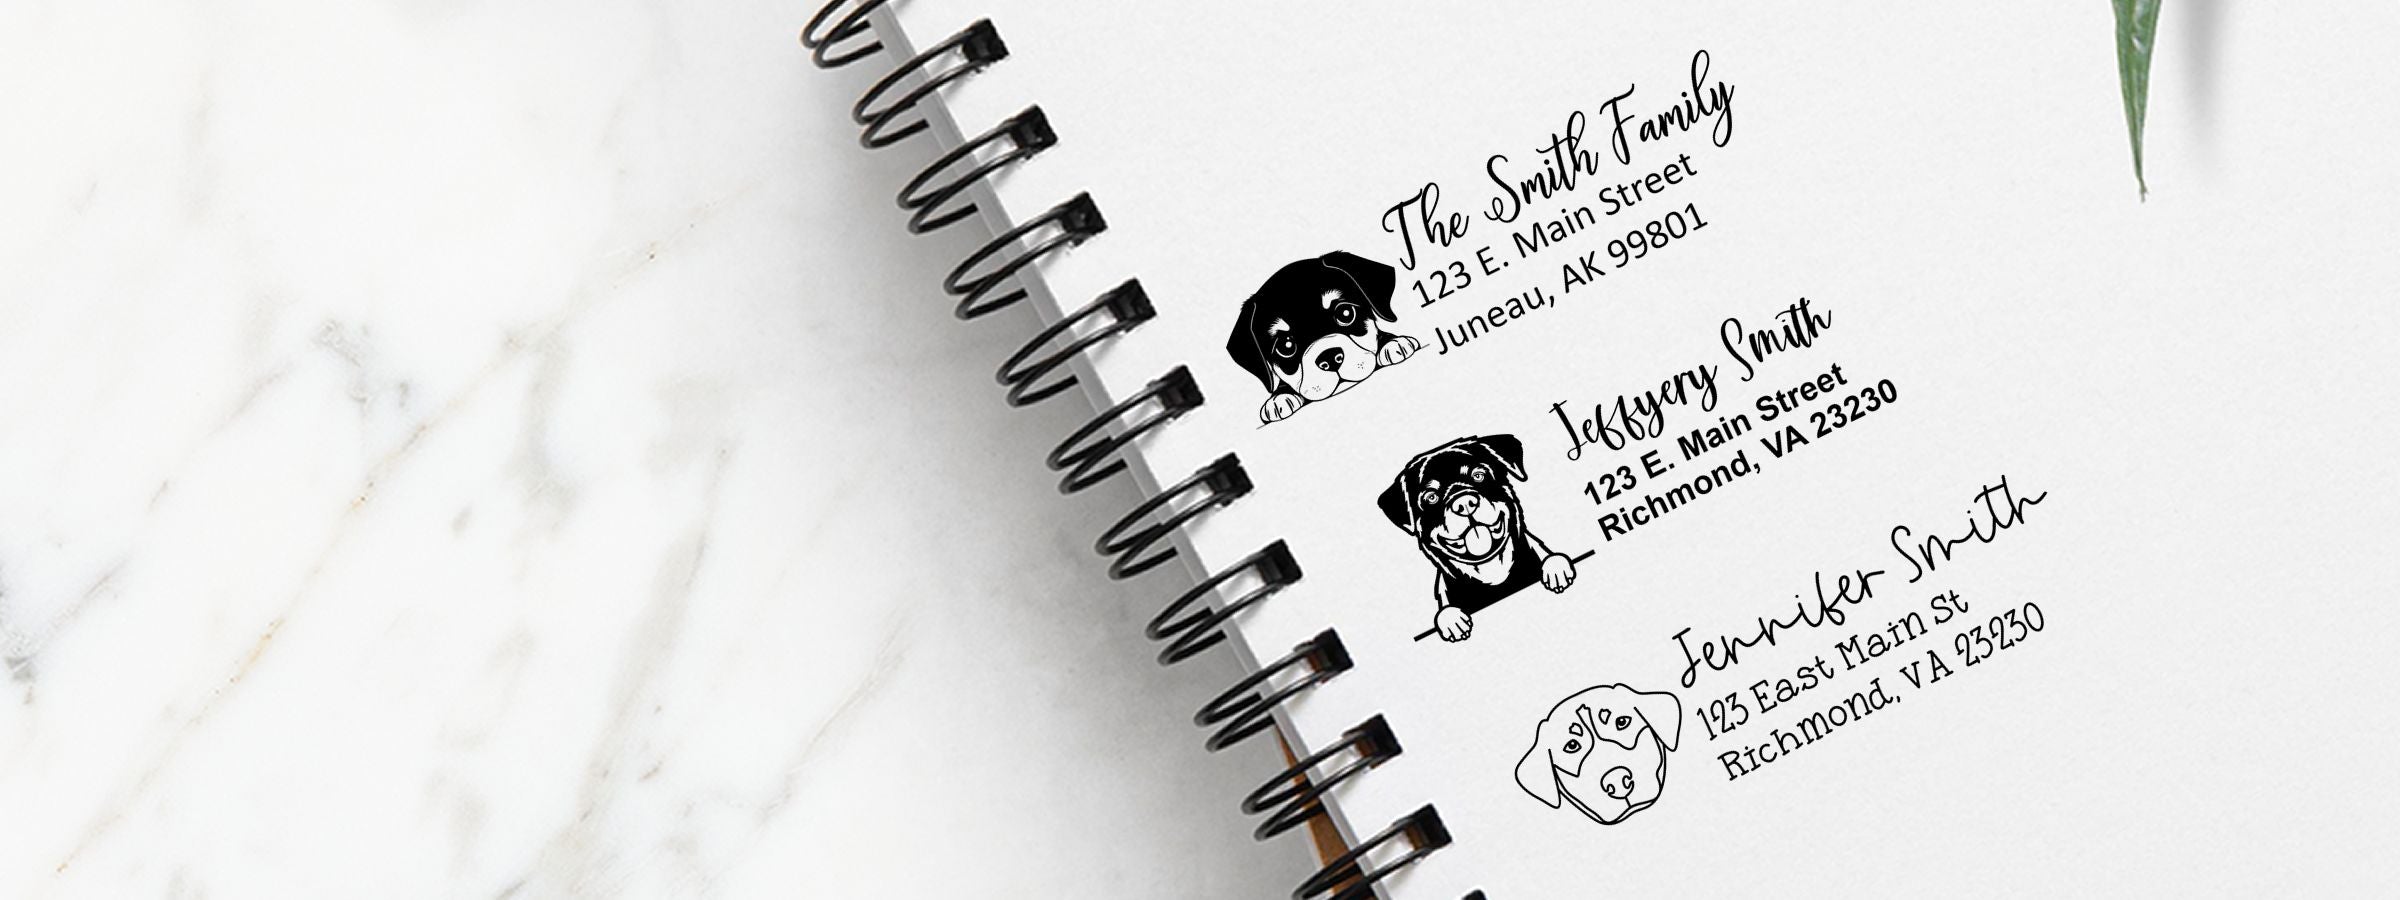 The Smith Family
123 E. Main Street
Juneau, AK 99801
Jeffyery Smith
123 E. Main Street
Richmond, VA 23230
Jennifer Smith
123 East Main St
Richmond, VA 23230